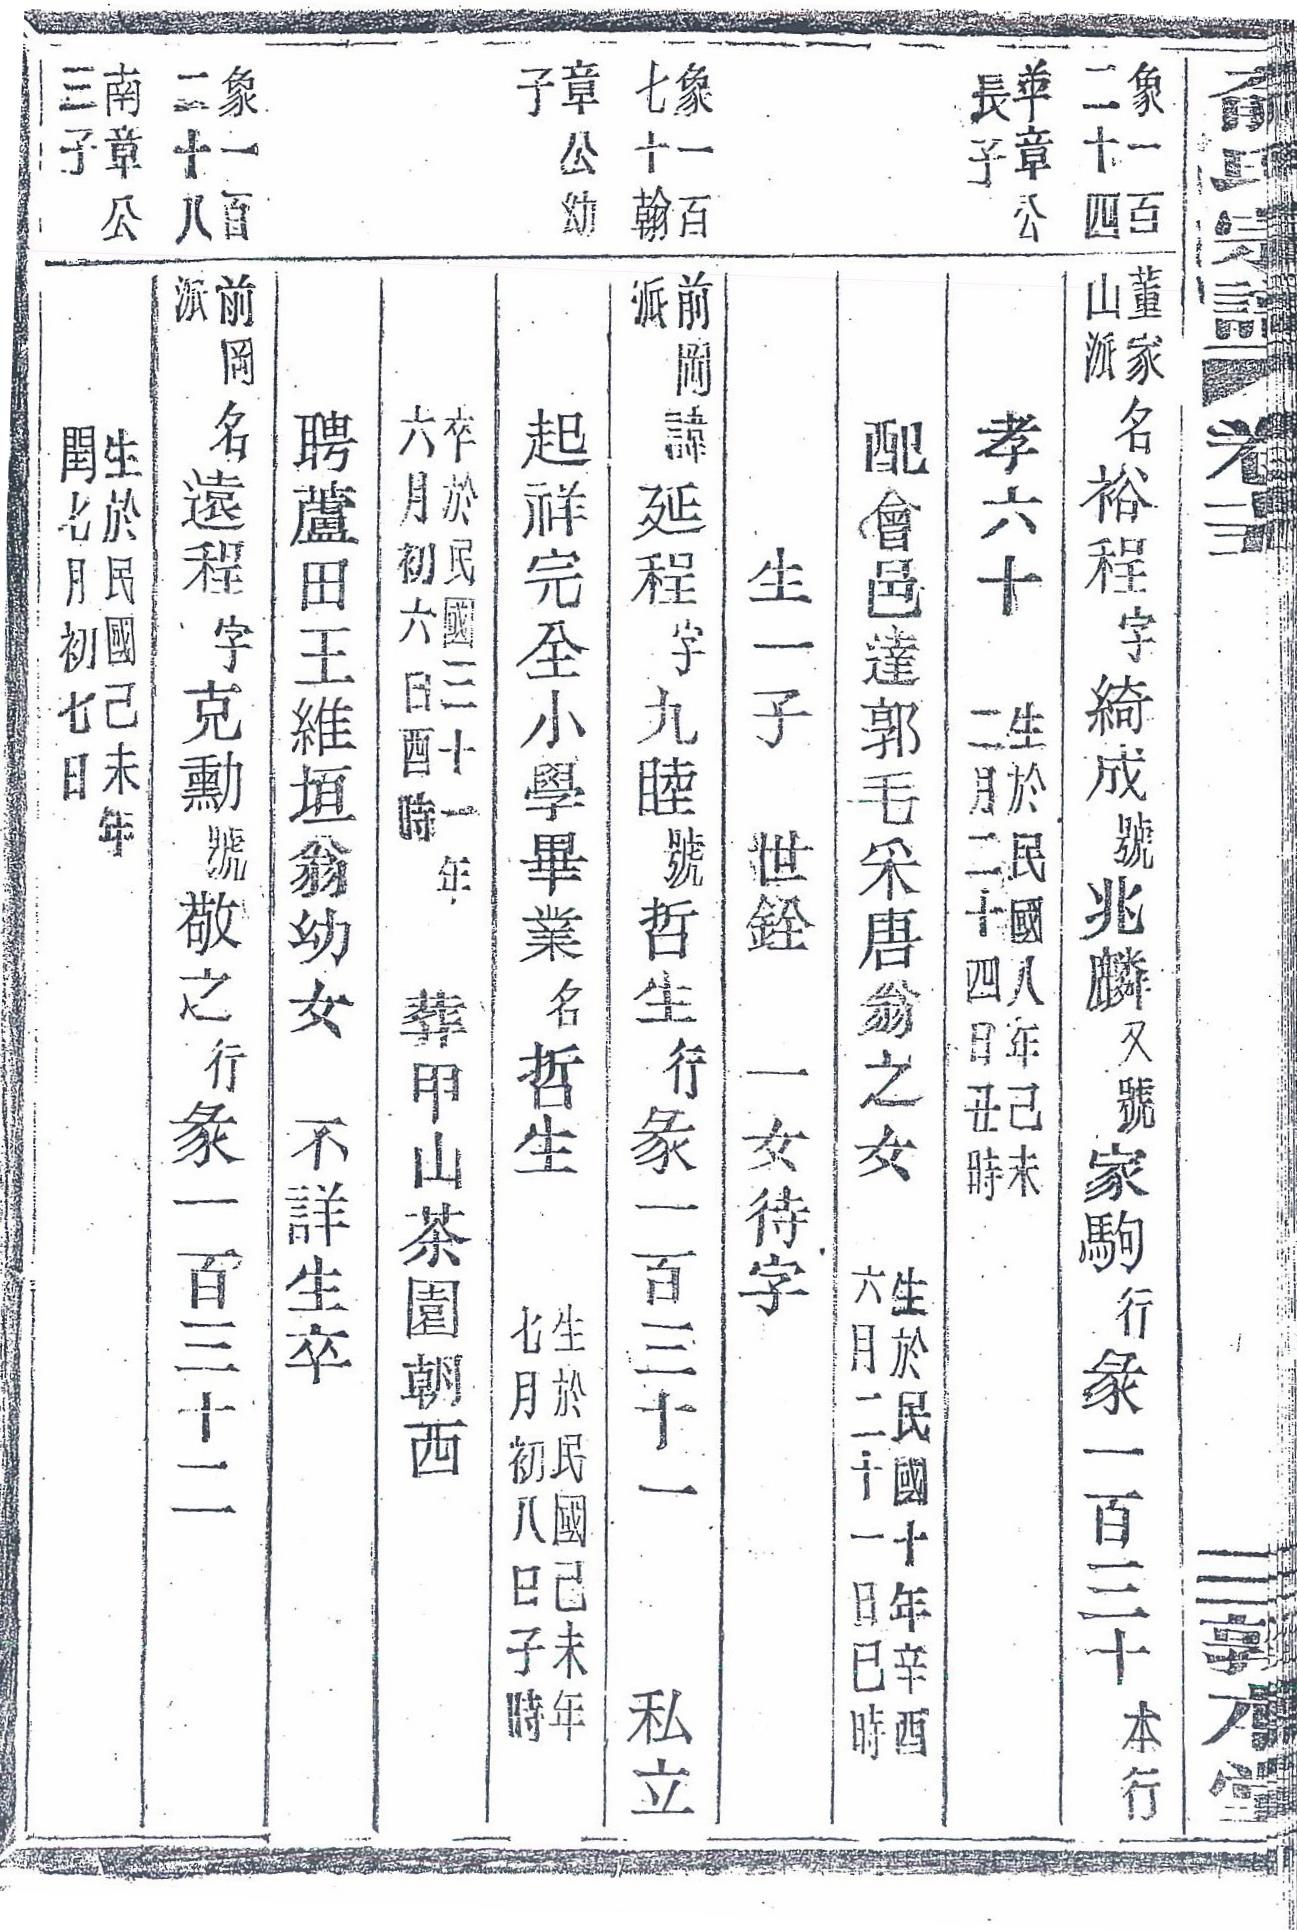 俞氏宗譜 卷三 敦本堂
象一百
二十四
華章公
長子
象一百
七十翰
章公幼
子
象一百
二十八
南章公
三子
董家
山派
名裕程字綺成號兆麟又號家駒行彖一百三十 本行
孝六十 生於民國八年己未
二月二十四日丑時
配會邑達郭毛采唐翁之女 生於民國十年辛酉
六月二十一日巳時
生一子 世銓 一女待字
前岡
派
諱延程字九睦號哲生行彖一百三十一 私立
起祥完全小學畢業名哲生 生於民國己未年
七月初八日子時
卒於民國三十一年
六月初六日酉時 葬甲山茶園朝西
聘蘆田王維垣翁幼女 不詳生卒
前岡
派
名遠程字克勳號敬之行彖一百三十二
生於民國己未年
閏七月初七日